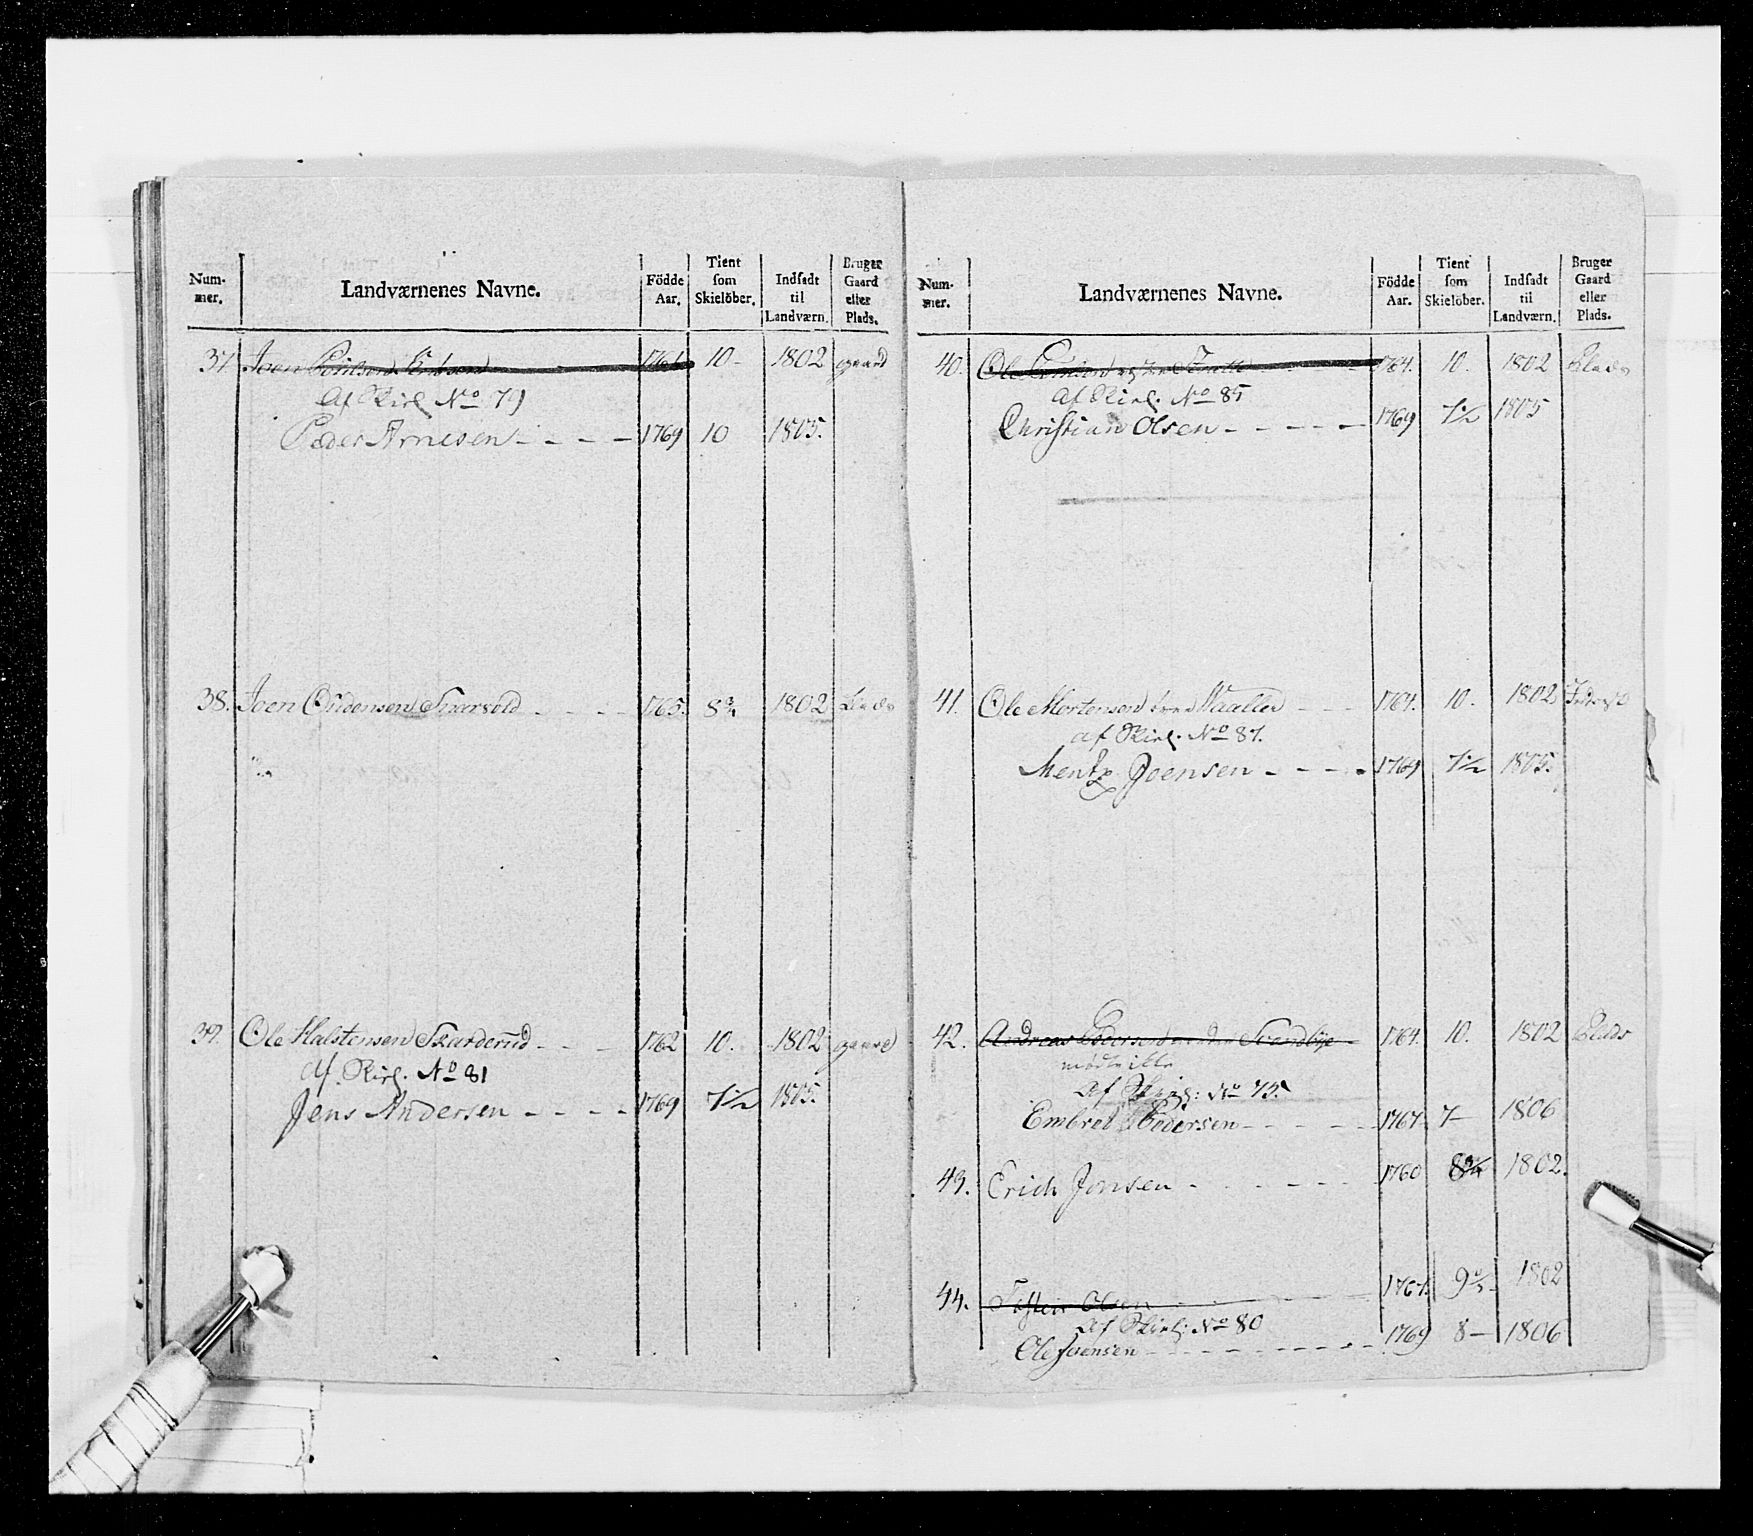 Num-
mer.
Landværnenes Navne.
Födde
Aar.
Tient
som
Skielöber.
Indsadt
til
Landværn.
Bruger
Gaard
eller
Plads.
37. Joen 1761 10 - 1802 gaard
Af Skirl No 79
Peder Arnesen - - - - 1769 10 1805.
38. Joen Oudensen - - - 1765. 8 3/4 1802 Plads
39. Ole Halstensen Skarderud - - - 1762 10. 1802 gaard
Af. Skirl. No 81
Jens Andersen - - - - 1769 7 1/2 1805.
Num-
mer.
Landværnenes Navne.
Födde
Aar.
Tient
som
Skielöber.
Indsadt
til
Landværn.
Bruger
Gaard
eller
Plads.
40. Ole 1764. 10. 1802 Plads
Af Skirl. No 85
Christian Olsen - - - - - 1769 7 1/2 1805
41. Ole Mortensen - - - 1764. 10. 1802
af Skirl. No 87.
Mentz Joensen - - - - 1769 7 1/2 1805.
42. Andreas 1764. 10. 1802 Plads
mödte ikke
Af No 75.
Embret Pedersen - - - - - 1767. 7 - 1806
43. Erich Jonsen - - - - - - 1760 8 3/4 1802.
44. Tosten Olsen 1767. 9 1802
Af Skirl: No 80
Ole Joensen - - - - - - - - - 1769 8 - 1806